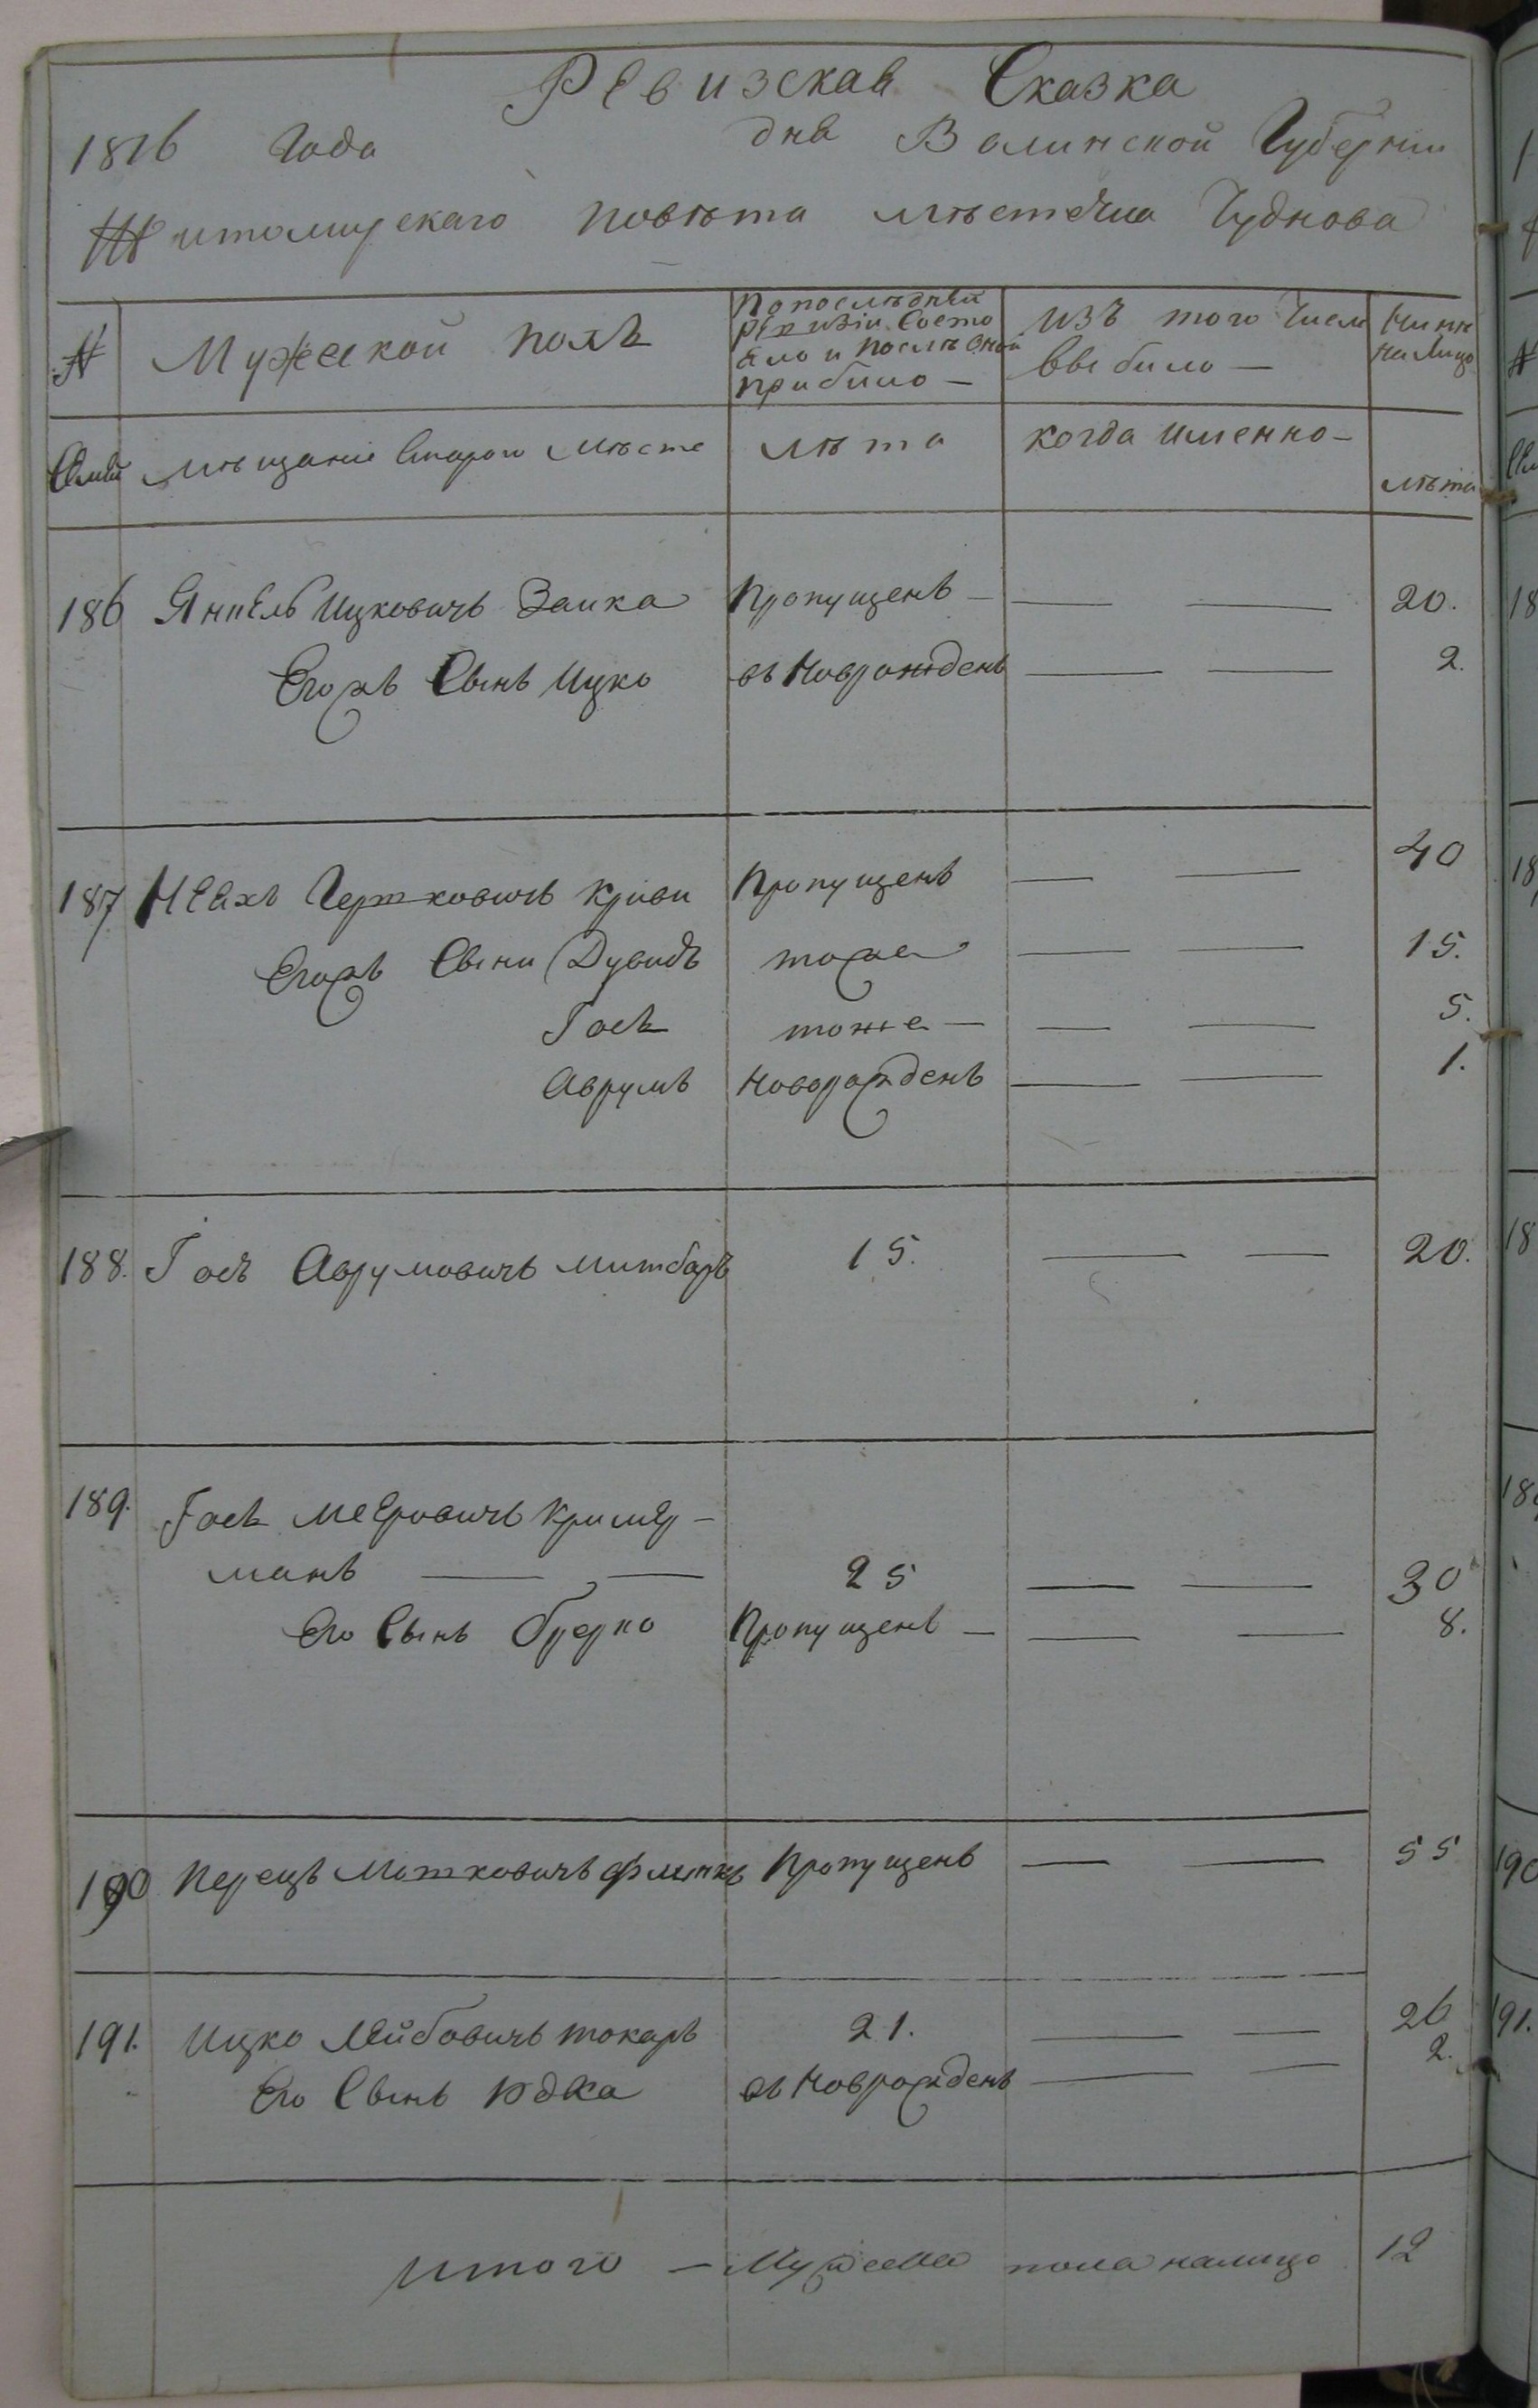 Ревизская Сказка
1816 Года дня Волинской Губернии
Житомирскаго повѣта мѣстечка Чуднова
№ Мужеской полъ
Попоследней ревизіи состояло и послѣ оной прибило —
Изъ того Числа выбило —
Ныне налицо
Семьи мѣщание Старого мѣста лѣта когда именно — лѣта
186 Янкель Ицковичъ Заика Пропущенъ — 20.
Егожъ Сынъ Ицко въ Новрожденъ 2.
187 Гершковичъ Криви Пропущенъ 40
Егожъ Сыни Дувидъ тоже 15.
Іосъ тоже — 5.
Аврумъ Новорожденъ 1.
188. Іосъ Аврумовичъ 15. 20.
189. Іосъ Меѣровичъ Кример-
манъ 25 30
Его Сынъ Пропущенъ — 8.
190 Перецъ Мошковичъ Пропущенъ 55
191. Ицко Лейбовичъ токаръ 21. 26
Его Сынъ Юдка въ Новрожденъ 2.
итого — Мужеска пола налицо 12